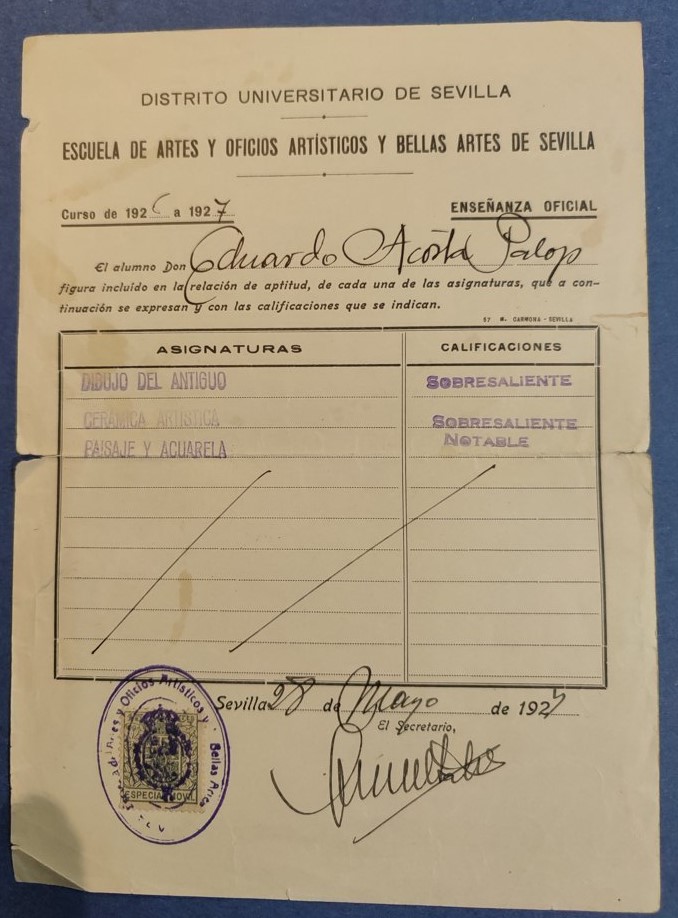 DISTRITO UNIVERSITARIO DE SEVILLA
ESCUELA DE ARTES Y OFICIOS ARTÍSTICOS Y BELLAS ARTES DE SEVILLA
Curso de 1926 a 1927 ENSEÑANZA OFICIAL
El alumno Don Eduardo Acosta Palop
figura incluido en la relación de aptitud, de cada una de las asignaturas, que a con-
tinuación se expresan y con las calificaciones que se indican.
M. CARMONA - SEVILLA
ASIGNATURAS CALIFICACIONES
DIBUJO DEL ANTIGUO SOBRESALIENTE
CERÁMICA ARTISTICA SOBRESALIENTE
PAISAJE Y ACUARELA NOTABLE
Sevilla 28 de Mayo de 1927
El Secretario,
Artes y Oficios Artísticos y Bellas Artes
ESPECIAL MOVIL